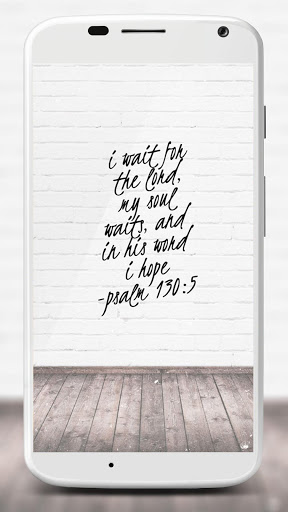 i wait for
the lord,
my soul
waits, and
in his word
i hope
-psalm 130:5